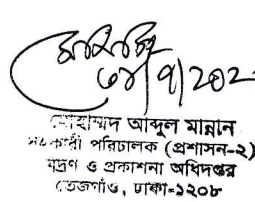 ৩১/৭/202
মোহাম্মদ আব্দুল মান্নান
সহকারী পরিচালক (প্রশাসন-২)
মুদ্রণ ও প্রকাশনা অধিদপ্তর
তেজগাঁও, ঢাকা-১২০৮